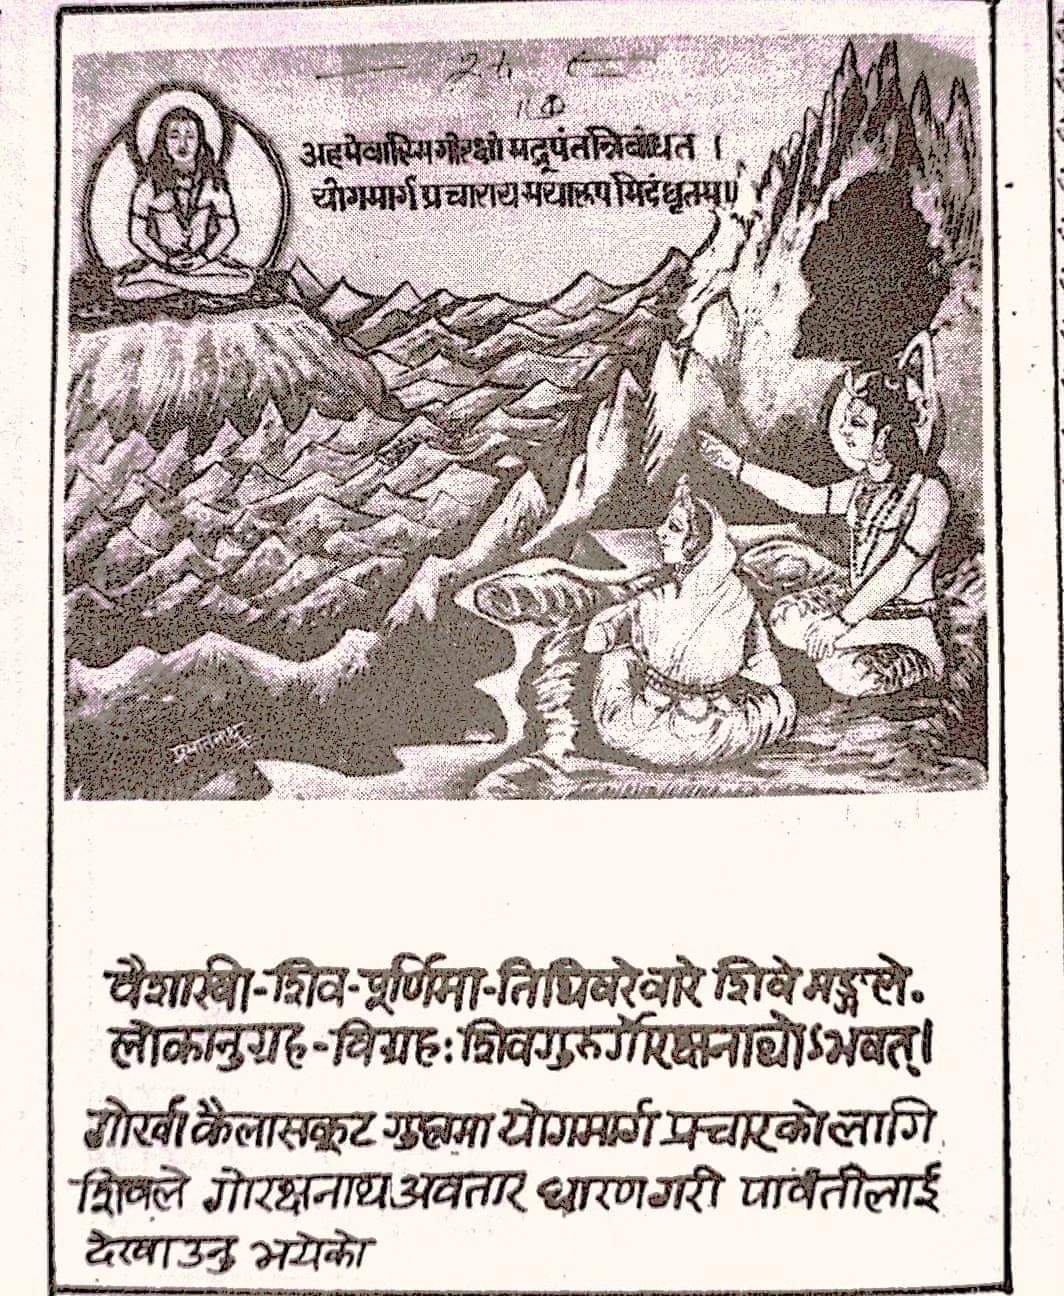 अहमेवास्मि गोरक्षो मद्रूपं तन्निबोधत ।
योगमार्ग प्रचाराय मयारूप मिदं धृतम् ॥
प्रभातनाथ
वैशाखी-शिव-पूर्णिमा-तिथिवरे वारे शिवे मङ्गले.
लोकानुग्रह-विग्रहः शिवगुरुर्गोरक्षनाथोऽभवत्।
गोर्खा कैलासकूट गुह्यमा योगमार्ग प्रचारको लागि
शिवले गोरक्षनाथ अवतार धारण गरी पार्वतीलाई
देखाउनु भयेको